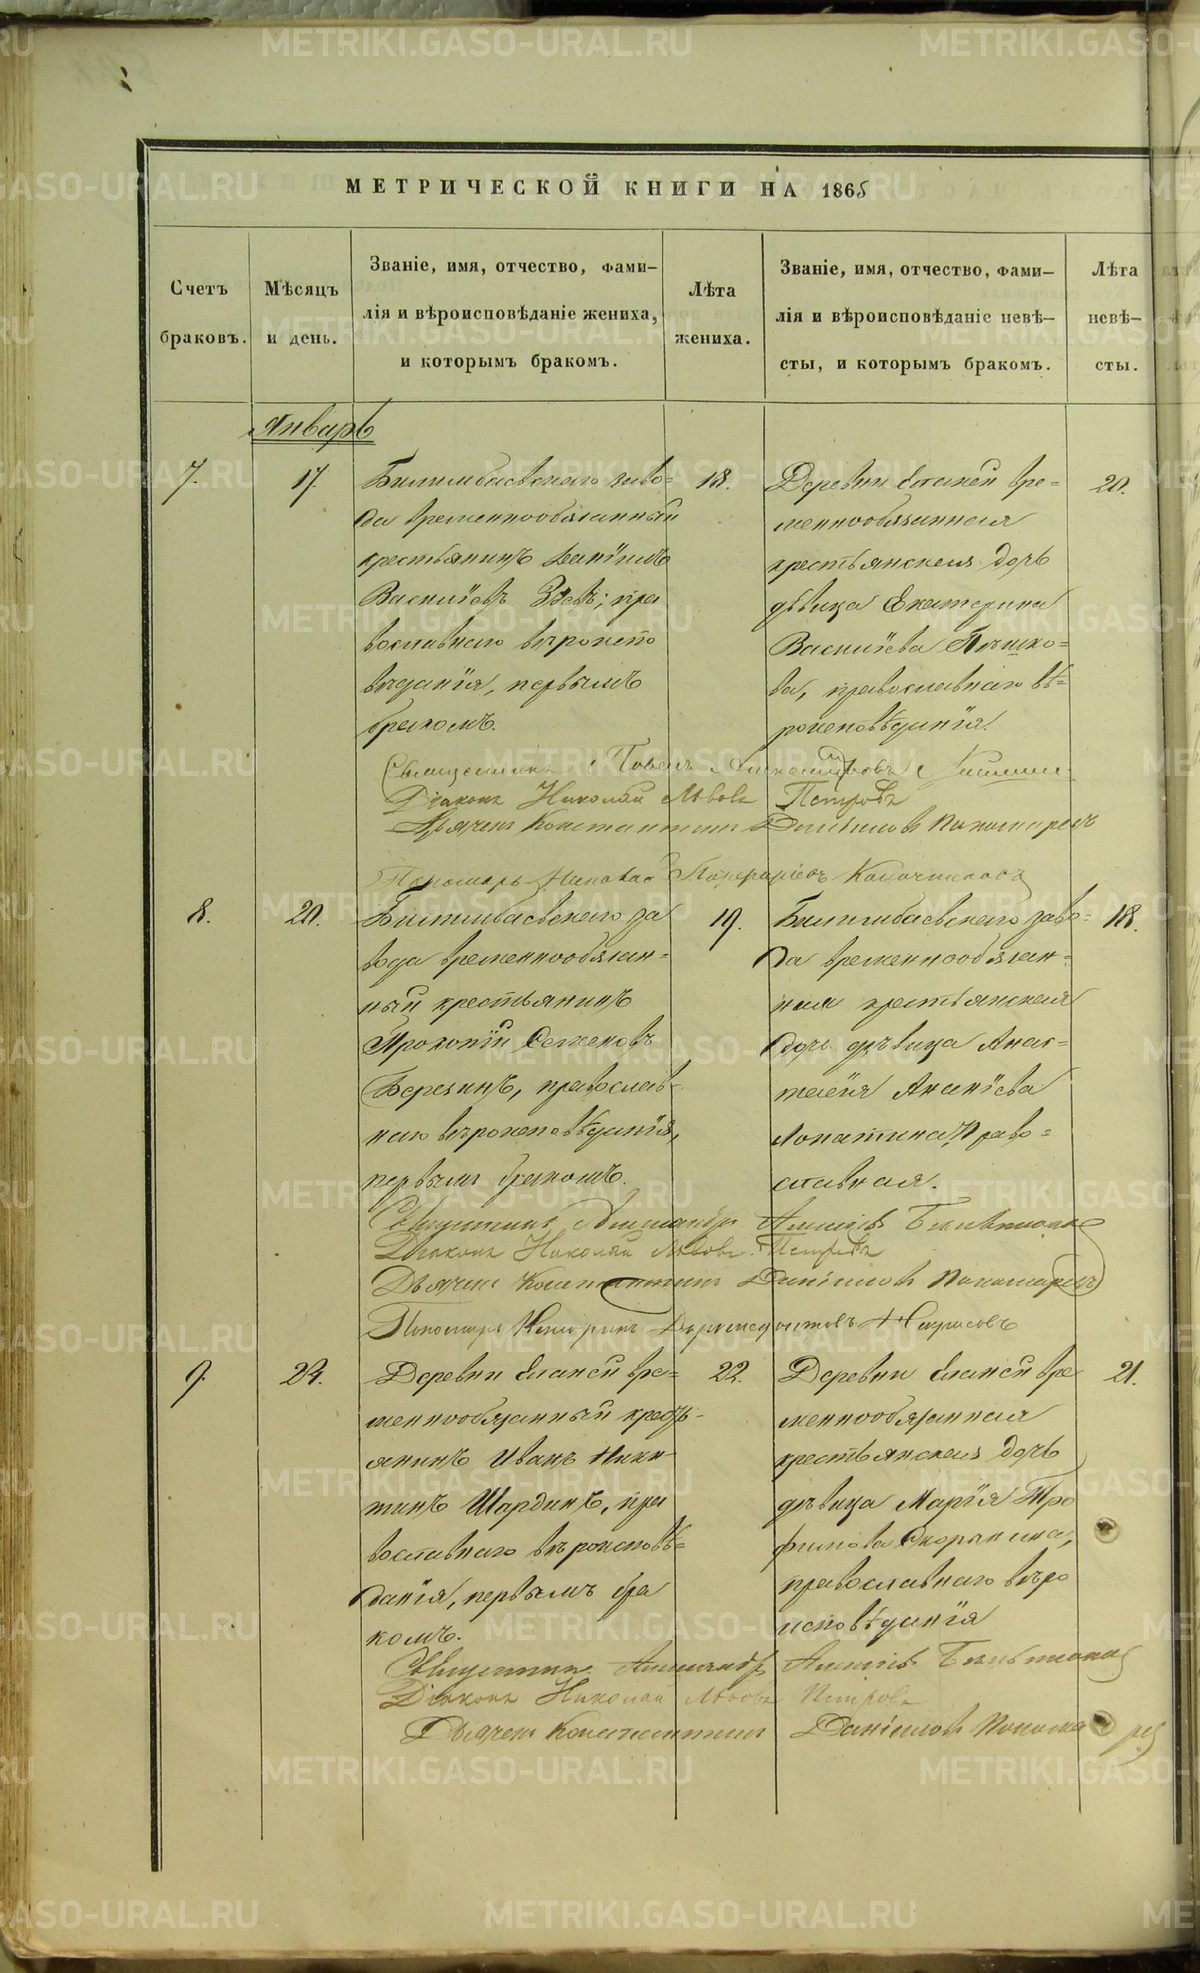 МЕТРИЧЕСКОЙ КНИГИ НА 1865
Счетъ
браковъ.
Мѣсяцъ
и день.
Званіе, имя, отчество, фами-
лія и вѣроисповѣданіе жениха,
и которымъ бракомъ.
Лѣта
жениха.
Званіе, имя, отчество, фами-
лія и вѣроисповѣданіе невѣ-
сты, и которымъ бракомъ.
Лѣта
невѣ-
сты.
Январь
7.
17.
Билимбаевскаго заво-
да временнообязанный
крестьянинъ
Васильевъ Зуевъ; пра
вославнаго вѣроиспо
вѣданія, первымъ
бракомъ.
18.
Деревни Еланей вре-
меннообязанная
крестьянская дочь
дѣвица Екатерина
Васильева
ва, православнаго вѣ-
роисповѣданія.
20.
Священникъ Павелъ
Діаконъ Николай Львовъ Петровъ
Дьячекъ Константинъ Даніиловъ Пономаревъ
Пономарь
8.
20.
Билимбаевскаго за
вода временнообязан-
ный крестьянинъ
Прокопій Семеновъ
Березинъ, православ-
наго вѣроисповѣданія,
первымъ бракомъ.
19.
Билимбаевскаго заво-
да временнообязан-
ная крестьянская
дочь дѣвица Анас-
тасія Ананіева
Лопатина, право-
славная.
18.
Священникъ Александръ Алексѣевъ
Діаконъ Николай Львовъ Петровъ
Дьячекъ Константинъ Даніиловъ Пономаревъ
Пономарь Некрасовъ
9.
24.
Деревни Еланей вре-
меннообязанный кресть-
янинъ Иванъ Ники-
тинъ Шардинъ, пра
вославнаго вѣроисповѣ-
данія, первымъ бра
комъ.
22.
Деревни Еланей вре
меннообязанная
крестьянская дочь
дѣвица Марія Тро
фимова Скорынина,
православнаго вѣро
исповѣданія
21.
Священникъ Александръ Алексѣевъ
Діаконъ Николай Львовъ Петровъ
Дьячекъ Константинъ Даніиловъ Пономаревъ
METRIKI.GASO-URAL.RU